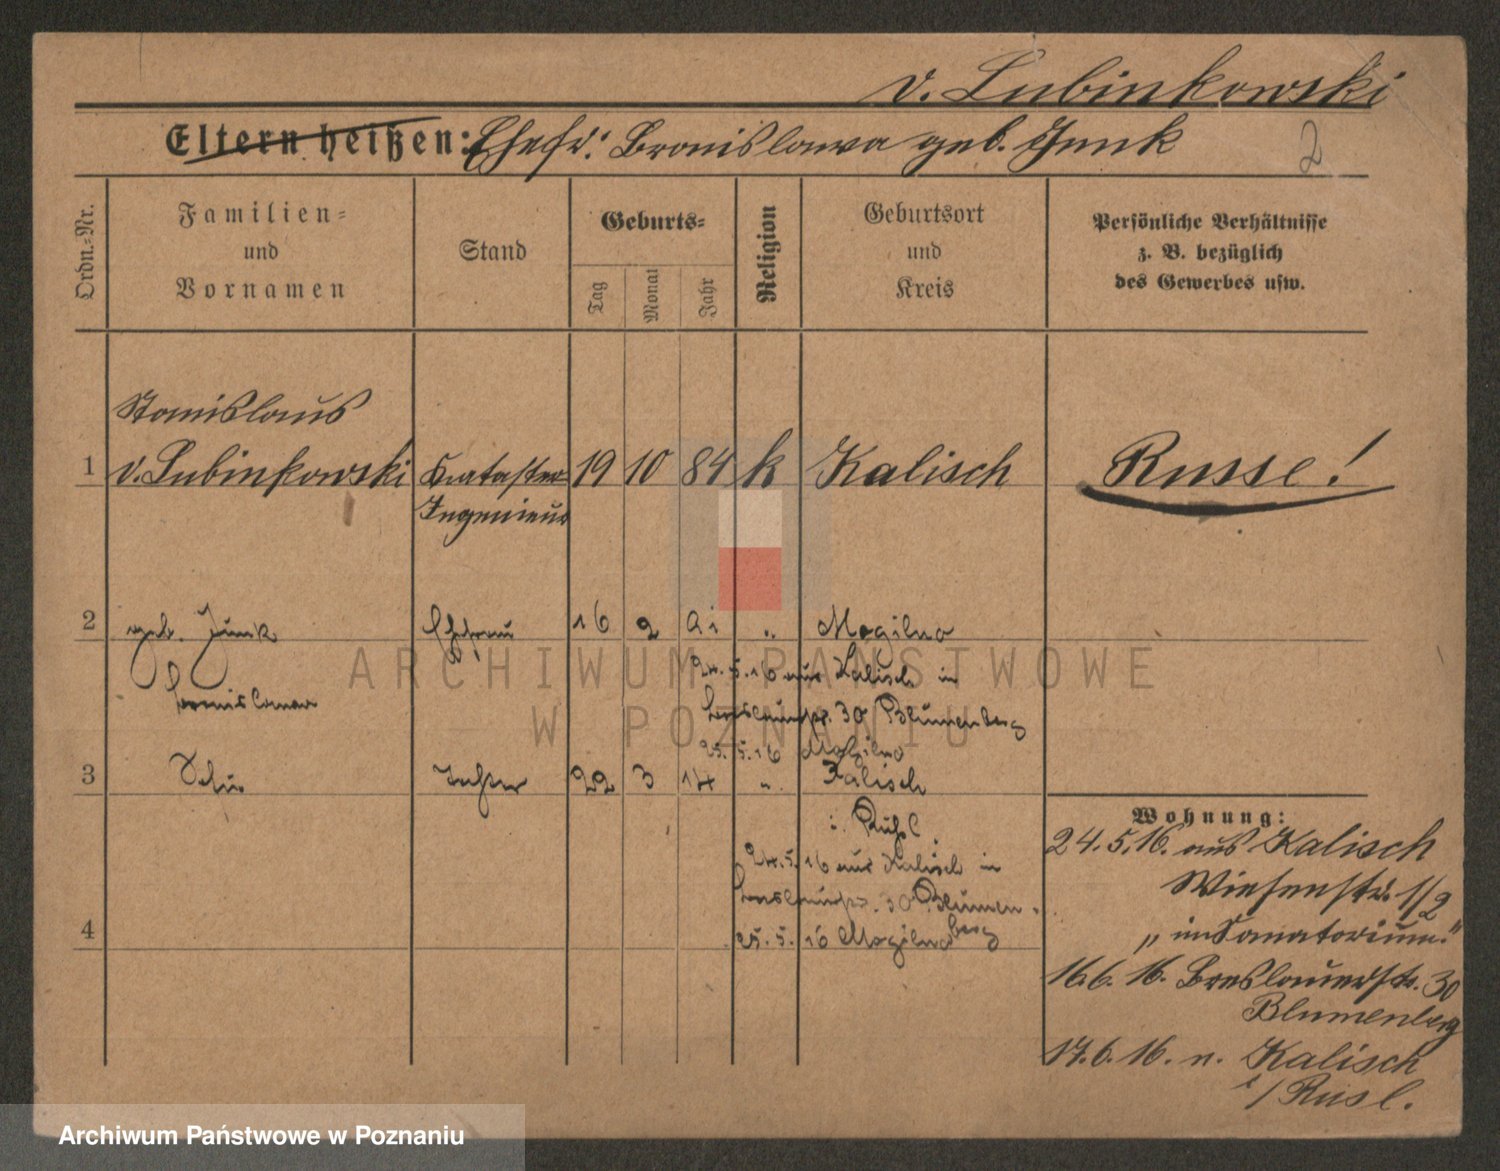 v. Lubinkowski
Eltern heißen: Ehefr: Bronislawa geb. Junk
2
Ordn.-Nr.
Familien-
und
Vornamen
Stand
Geburts-
Tag
Monat
Jahr
Religion
Geburtsort
und
Kreis
Persönliche Verhältnisse
z. B. bezüglich
des Gewerbes usw.
Stanislaus
1 v. Lubinkowski Kataster- 19 10 84 k Kalisch Russe!
Ingenieur
2 geb. Junk Ehefrau 16 2 91 " Mogilno
Bronislawa
24.5.16 aus Kalisch in
Breslauerstr. 30 Blumenberg
25.5.16 Mogilno
3 22 3 14 " Kalisch
i. Rußl.
24.5.16 aus Kalisch in
Breslauerstr. 30 Blumen-
berg
4 25.5.16 Mogilno
Wohnung:
24.5.16. aus Kalisch
Wiesenstr. 1/2
"im Sanatorium."
16.6.16. Breslauerstr. 30
Blumenberg
17.6.16. n. Kalisch
i/Rusl.
ARCHIWUM PAŃSTWOWE
W POZNANIU
Archiwum Państwowe w Poznaniu